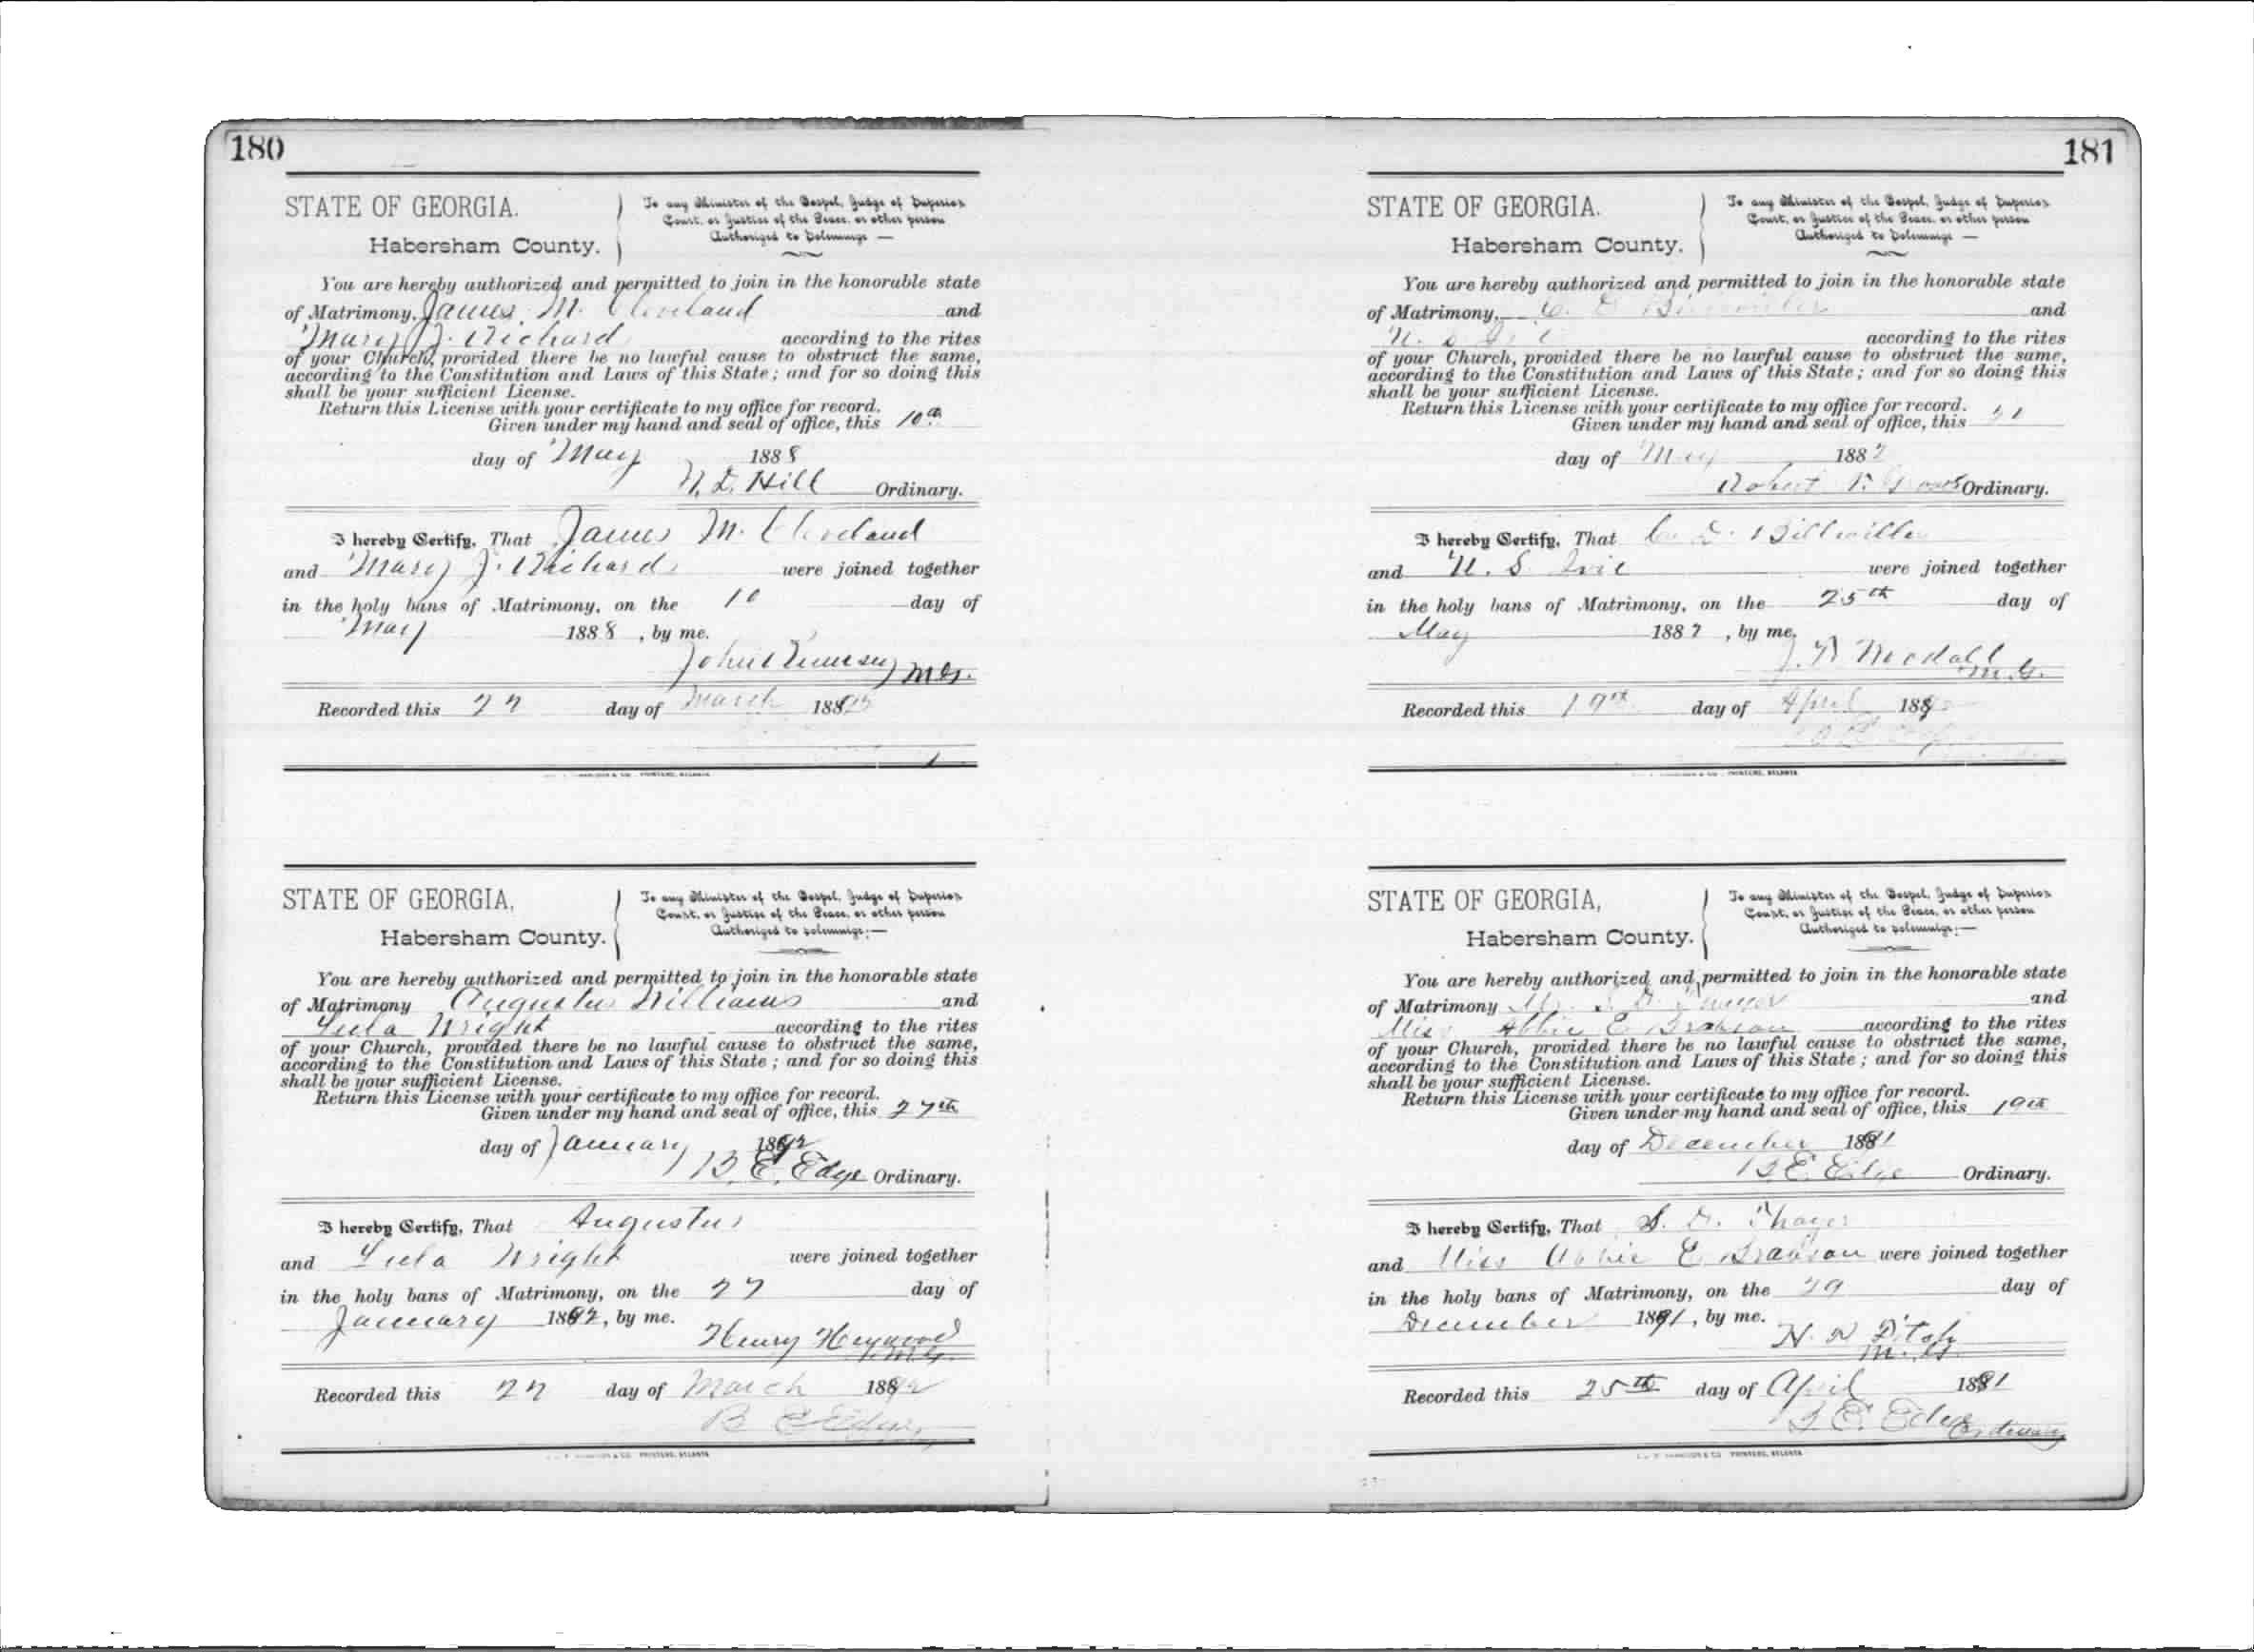 180
STATE OF GEORGIA.
Habersham County.
To any Minister of the Gospel, Judge of Superior
Court, or Justice of the Peace, or other person
Authorized to Solemnize —
You are hereby authorized and permitted to join in the honorable state
of Matrimony, James M. Cleveland and
Mary J. Richards according to the rites
of your Church, provided there be no lawful cause to obstruct the same,
according to the Constitution and Laws of this State; and for so doing this
shall be your sufficient License.
Return this License with your certificate to my office for record.
Given under my hand and seal of office, this 10th
day of May 1888
Hill Ordinary.
I hereby Certify, That James M. Cleveland
and Mary J. Richards were joined together
in the holy bans of Matrimony, on the 10 day of
May 1888, by me.
John M.G.
Recorded this 22 day of March 18
STATE OF GEORGIA,
Habersham County.
To any Minister of the Gospel, Judge of Superior
Court, or Justice of the Peace, or other person
Authorized to solemnize;—
You are hereby authorized and permitted to join in the honorable state
of Matrimony Augustus Williams and
Lula Wright according to the rites
of your Church, provided there be no lawful cause to obstruct the same,
according to the Constitution and Laws of this State; and for so doing this
shall be your sufficient License.
Return this License with your certificate to my office for record.
Given under my hand and seal of office, this 27th
day of January 1892
B. E. Edge Ordinary.
I hereby Certify, That Augustus
and Lula Wright were joined together
in the holy bans of Matrimony, on the 27 day of
January 1892, by me.
Henry M.G.
Recorded this 22 day of March 1892
B E Edge
181
STATE OF GEORGIA.
Habersham County.
To any Minister of the Gospel, Judge of Superior
Court, or Justice of the Peace, or other person
Authorized to Solemnize —
You are hereby authorized and permitted to join in the honorable state
of Matrimony, C. D. and
N. S. according to the rites
of your Church, provided there be no lawful cause to obstruct the same,
according to the Constitution and Laws of this State; and for so doing this
shall be your sufficient License.
Return this License with your certificate to my office for record.
Given under my hand and seal of office, this
day of May 1887
Robert Ordinary.
I hereby Certify, That C. D.
and N. S were joined together
in the holy bans of Matrimony, on the 25th day of
May 1887, by me.
M.G.
Recorded this 19th day of April 18
STATE OF GEORGIA,
Habersham County.
To any Minister of the Gospel, Judge of Superior
Court, or Justice of the Peace, or other person
Authorized to solemnize;—
You are hereby authorized and permitted to join in the honorable state
of Matrimony and
Miss Abbie E according to the rites
of your Church, provided there be no lawful cause to obstruct the same,
according to the Constitution and Laws of this State; and for so doing this
shall be your sufficient License.
Return this License with your certificate to my office for record.
Given under my hand and seal of office, this 19th
day of December 1891
B E Edge Ordinary.
I hereby Certify, That S. D. Thayer
and Miss Abbie E were joined together
in the holy bans of Matrimony, on the 29 day of
December 1891, by me.
M.G.
Recorded this 25th day of April 1891
B E. Edge Ordinary